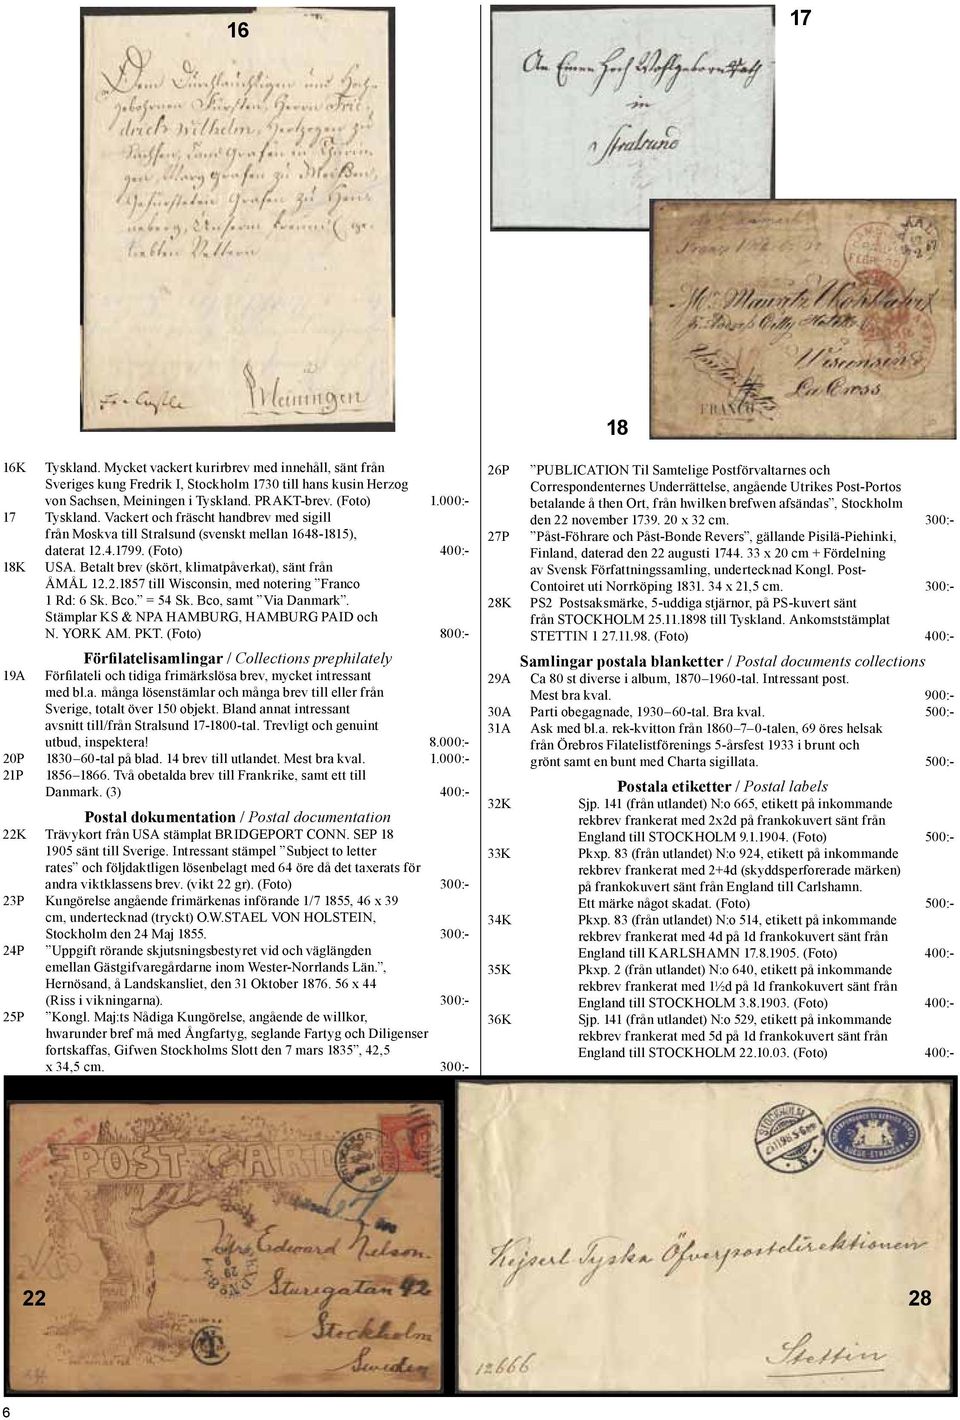 16
17
Dem Durchlauchtigen und Hoch-
gebohrnen Fürsten, Herrn Frie-
drich Wilhelm, Hertzogen zu
Sachsen, Land Grafen in Thürin-
gen, Marg Grafen zu Meißen,
Gefürsteten Grafen zu Hen-
neberg, Unserm freundl. ge-
liebten Vettern
Meiningen
An Einen Hoch Wohlgebornen Rath
in
Stralsund
Wisconsin
La Cross
FRANCO
18
16K Tyskland. Mycket vackert kurirbrev med innehåll, sänt från
Sveriges kung Fredrik I, Stockholm 1730 till hans kusin Herzog
von Sachsen, Meiningen i Tyskland. PRAKT-brev. (Foto) 1.000:-
17 Tyskland. Vackert och fräscht handbrev med sigill
från Moskva till Stralsund (svenskt mellan 1648-1815),
daterat 12.4.1799. (Foto) 400:-
18K USA. Betalt brev (skört, klimatpåverkat), sänt från
ÅMÅL 12.2.1857 till Wisconsin, med notering ”Franco
1 Rd: 6 Sk. Bco.” = 54 Sk. Bco, samt ”Via Danmark”.
Stämplar KS & NPA HAMBURG, HAMBURG PAID och
N. YORK AM. PKT. (Foto) 800:-
Förfilatelisamlingar / Collections prephilately
19A Förfilateli och tidiga frimärkslösa brev, mycket intressant
med bl.a. många lösenstämlar och många brev till eller från
Sverige, totalt över 150 objekt. Bland annat intressant
avsnitt till/från Stralsund 17-1800-tal. Trevligt och genuint
utbud, inspektera! 8.000:-
20P 1830–60-tal på blad. 14 brev till utlandet. Mest bra kval. 1.000:-
21P 1856–1866. Två obetalda brev till Frankrike, samt ett till
Danmark. (3) 400:-
Postal dokumentation / Postal documentation
22K Trävykort från USA stämplat BRIDGEPORT CONN. SEP 18
1905 sänt till Sverige. Intressant stämpel ”Subject to letter
rates” och följdaktligen lösenbelagt med 64 öre då det taxerats för
andra viktklassens brev. (vikt 22 gr). (Foto) 300:-
23P Kungörelse angående frimärkenas införande 1/7 1855, 46 x 39
cm, undertecknad (tryckt) O.W.STAEL VON HOLSTEIN,
Stockholm den 24 Maj 1855. 300:-
24P ”Uppgift rörande skjutsningsbestyret vid och väglängden
emellan Gästgifvaregårdarne inom Wester-Norrlands Län.”,
Hernösand, å Landskansliet, den 31 Oktober 1876. 56 x 44
(Riss i vikningarna). 300:-
25P ”Kongl. Maj:ts Nådiga Kungörelse, angående de willkor,
hwarunder bref må med Ångfartyg, seglande Fartyg och Diligenser
fortskaffas, Gifwen Stockholms Slott den 7 mars 1835”, 42,5
x 34,5 cm. 300:-
26P ”PUBLICATION Til Samtelige Postförvaltarnes och
Correspondenternes Underrättelse, angående Utrikes Post-Portos
betalande å then Ort, från hwilken brefwen afsändas”, Stockholm
den 22 november 1739. 20 x 32 cm. 300:-
27P ”Påst-Föhrare och Påst-Bonde Revers”, gällande Pisilä-Piehinki,
Finland, daterad den 22 augusti 1744. 33 x 20 cm + Fördelning
av Svensk Författningssamling, undertecknad Kongl. Post-
Contoiret uti Norrköping 1831. 34 x 21,5 cm. 300:-
28K PS2 Postsaksmärke, 5-uddiga stjärnor, på PS-kuvert sänt
från STOCKHOLM 25.11.1898 till Tyskland. Ankomststämplat
STETTIN 1 27.11.98. (Foto) 400:-
Samlingar postala blanketter / Postal documents collections
29A Ca 80 st diverse i album, 1870–1960-tal. Intressant post.
Mest bra kval. 900:-
30A Parti obegagnade, 1930–60-tal. Bra kval. 500:-
31A Ask med bl.a. rek-kvitton från 1860–7–0-talen, 69 öres helsak
från Örebros Filatelistförenings 5-årsfest 1933 i brunt och
grönt samt en bunt med Charta sigillata. 500:-
Postala etiketter / Postal labels
32K Sjp. 141 (från utlandet) N:o 665, etikett på inkommande
rekbrev frankerat med 2x2d på frankokuvert sänt från
England till STOCKHOLM 9.1.1904. (Foto) 500:-
33K Pkxp. 83 (från utlandet) N:o 924, etikett på inkommande
rekbrev frankerat med 2+4d (skyddsperforerade märken)
på frankokuvert sänt från England till Carlshamn.
Ett märke något skadat. (Foto) 500:-
34K Pkxp. 83 (från utlandet) N:o 514, etikett på inkommande
rekbrev frankerat med 4d på 1d frankokuvert sänt från
England till KARLSHAMN 17.8.1905. (Foto) 400:-
35K Pkxp. 2 (från utlandet) N:o 640, etikett på inkommande
rekbrev frankerat med 1½d på 1d frankokuvert sänt från
England till STOCKHOLM 3.8.1903. (Foto) 400:-
36K Sjp. 141 (från utlandet) N:o 529, etikett på inkommande
rekbrev frankerat med 5d på 1d frankokuvert sänt från
England till STOCKHOLM 22.10.03. (Foto) 400:-
POST-CARD
Mrs. Edward Nelson.
Sturegatan 42
Stockholm
Sweden
T
22
STOCKHOLM
Kejserl Tyska Öfverpostdirektionen
Stettin
12666
28
6